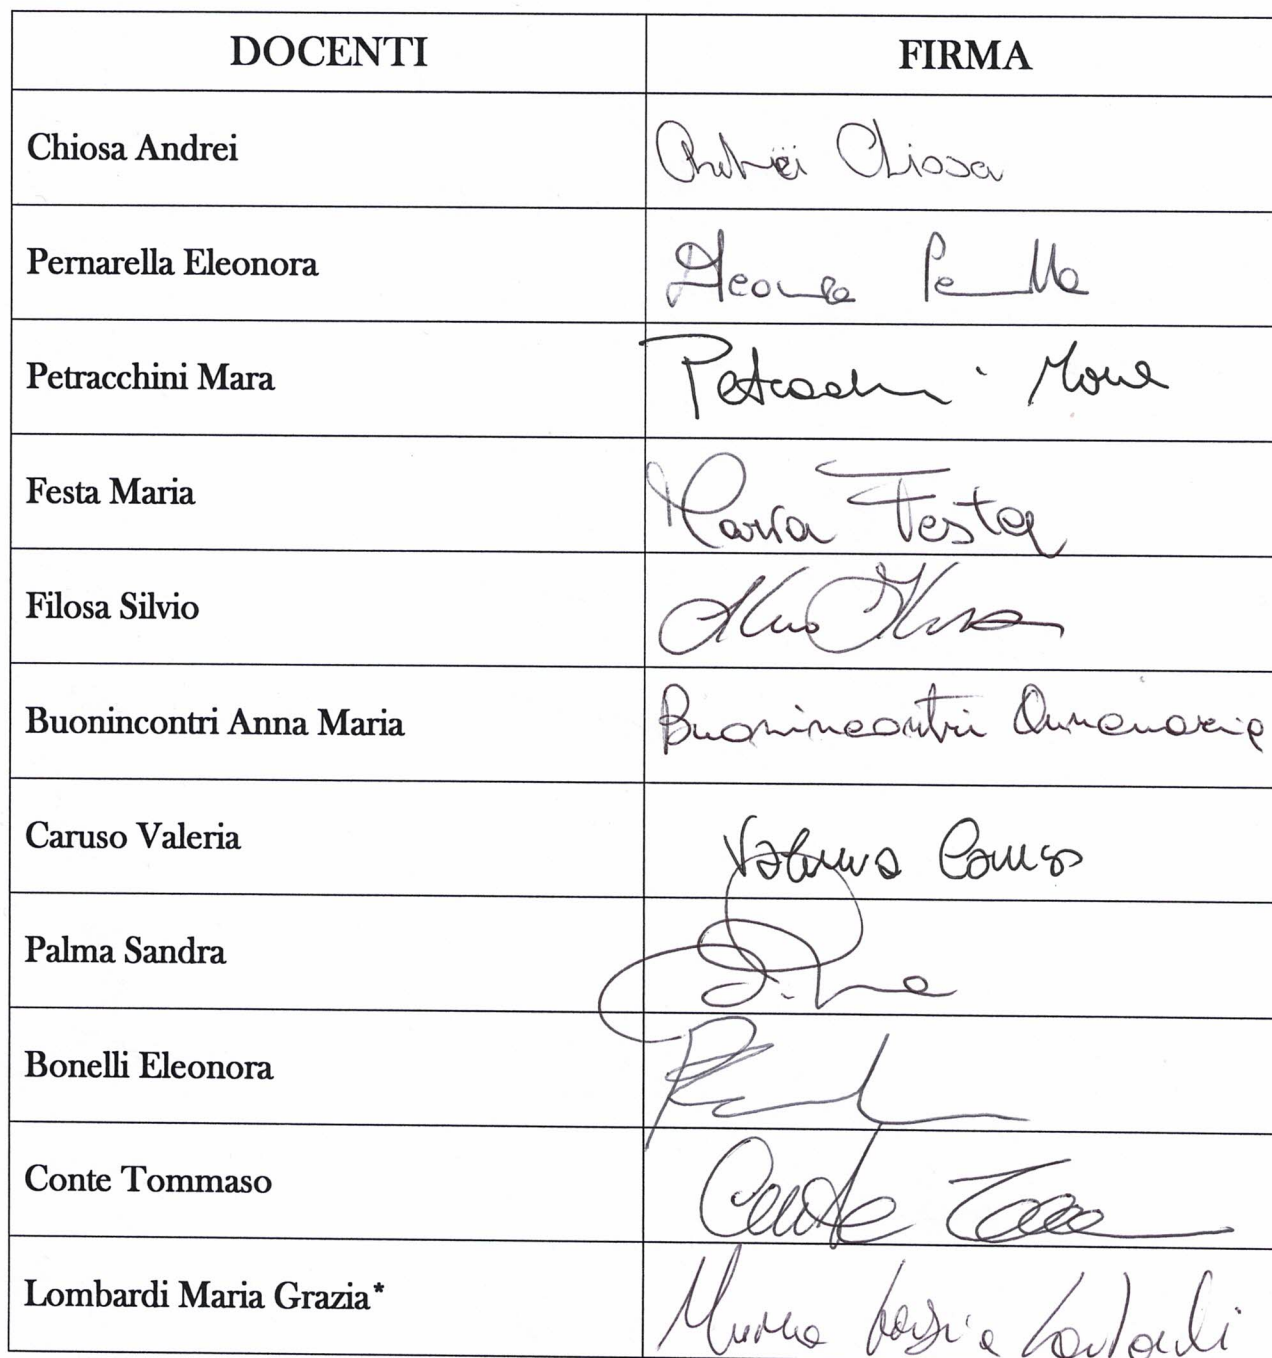 DOCENTI FIRMA
Chiosa Andrei Andrei Chiosa
Pernarella Eleonora
Petracchini Mara Petracchini Mara
Festa Maria Maria Festa
Filosa Silvio
Buonincontri Anna Maria Buonincontri Annamaria
Caruso Valeria Valeria Caruso
Palma Sandra
Bonelli Eleonora
Conte Tommaso Conte
Lombardi Maria Grazia* Maria Grazia Lombardi